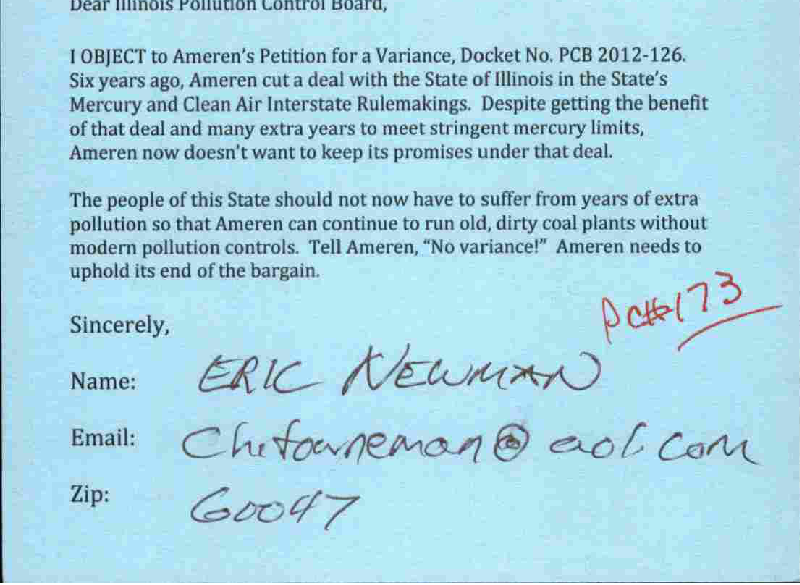 Dear Illinois Pollution Control Board,
I OBJECT to Ameren's Petition for a Variance, Docket No. PCB 2012-126.
Six years ago, Ameren cut a deal with the State of Illinois in the State's
Mercury and Clean Air Interstate Rulemakings. Despite getting the benefit
of that deal and many extra years to meet stringent mercury limits,
Ameren now doesn't want to keep its promises under that deal.
The people of this State should not now have to suffer from years of extra
pollution so that Ameren can continue to run old, dirty coal plants without
modern pollution controls. Tell Ameren, "No variance!" Ameren needs to
uphold its end of the bargain.
PC#173
Sincerely,
Name: ERIC NEWMAN
Email: @aol.com
Zip: 60047